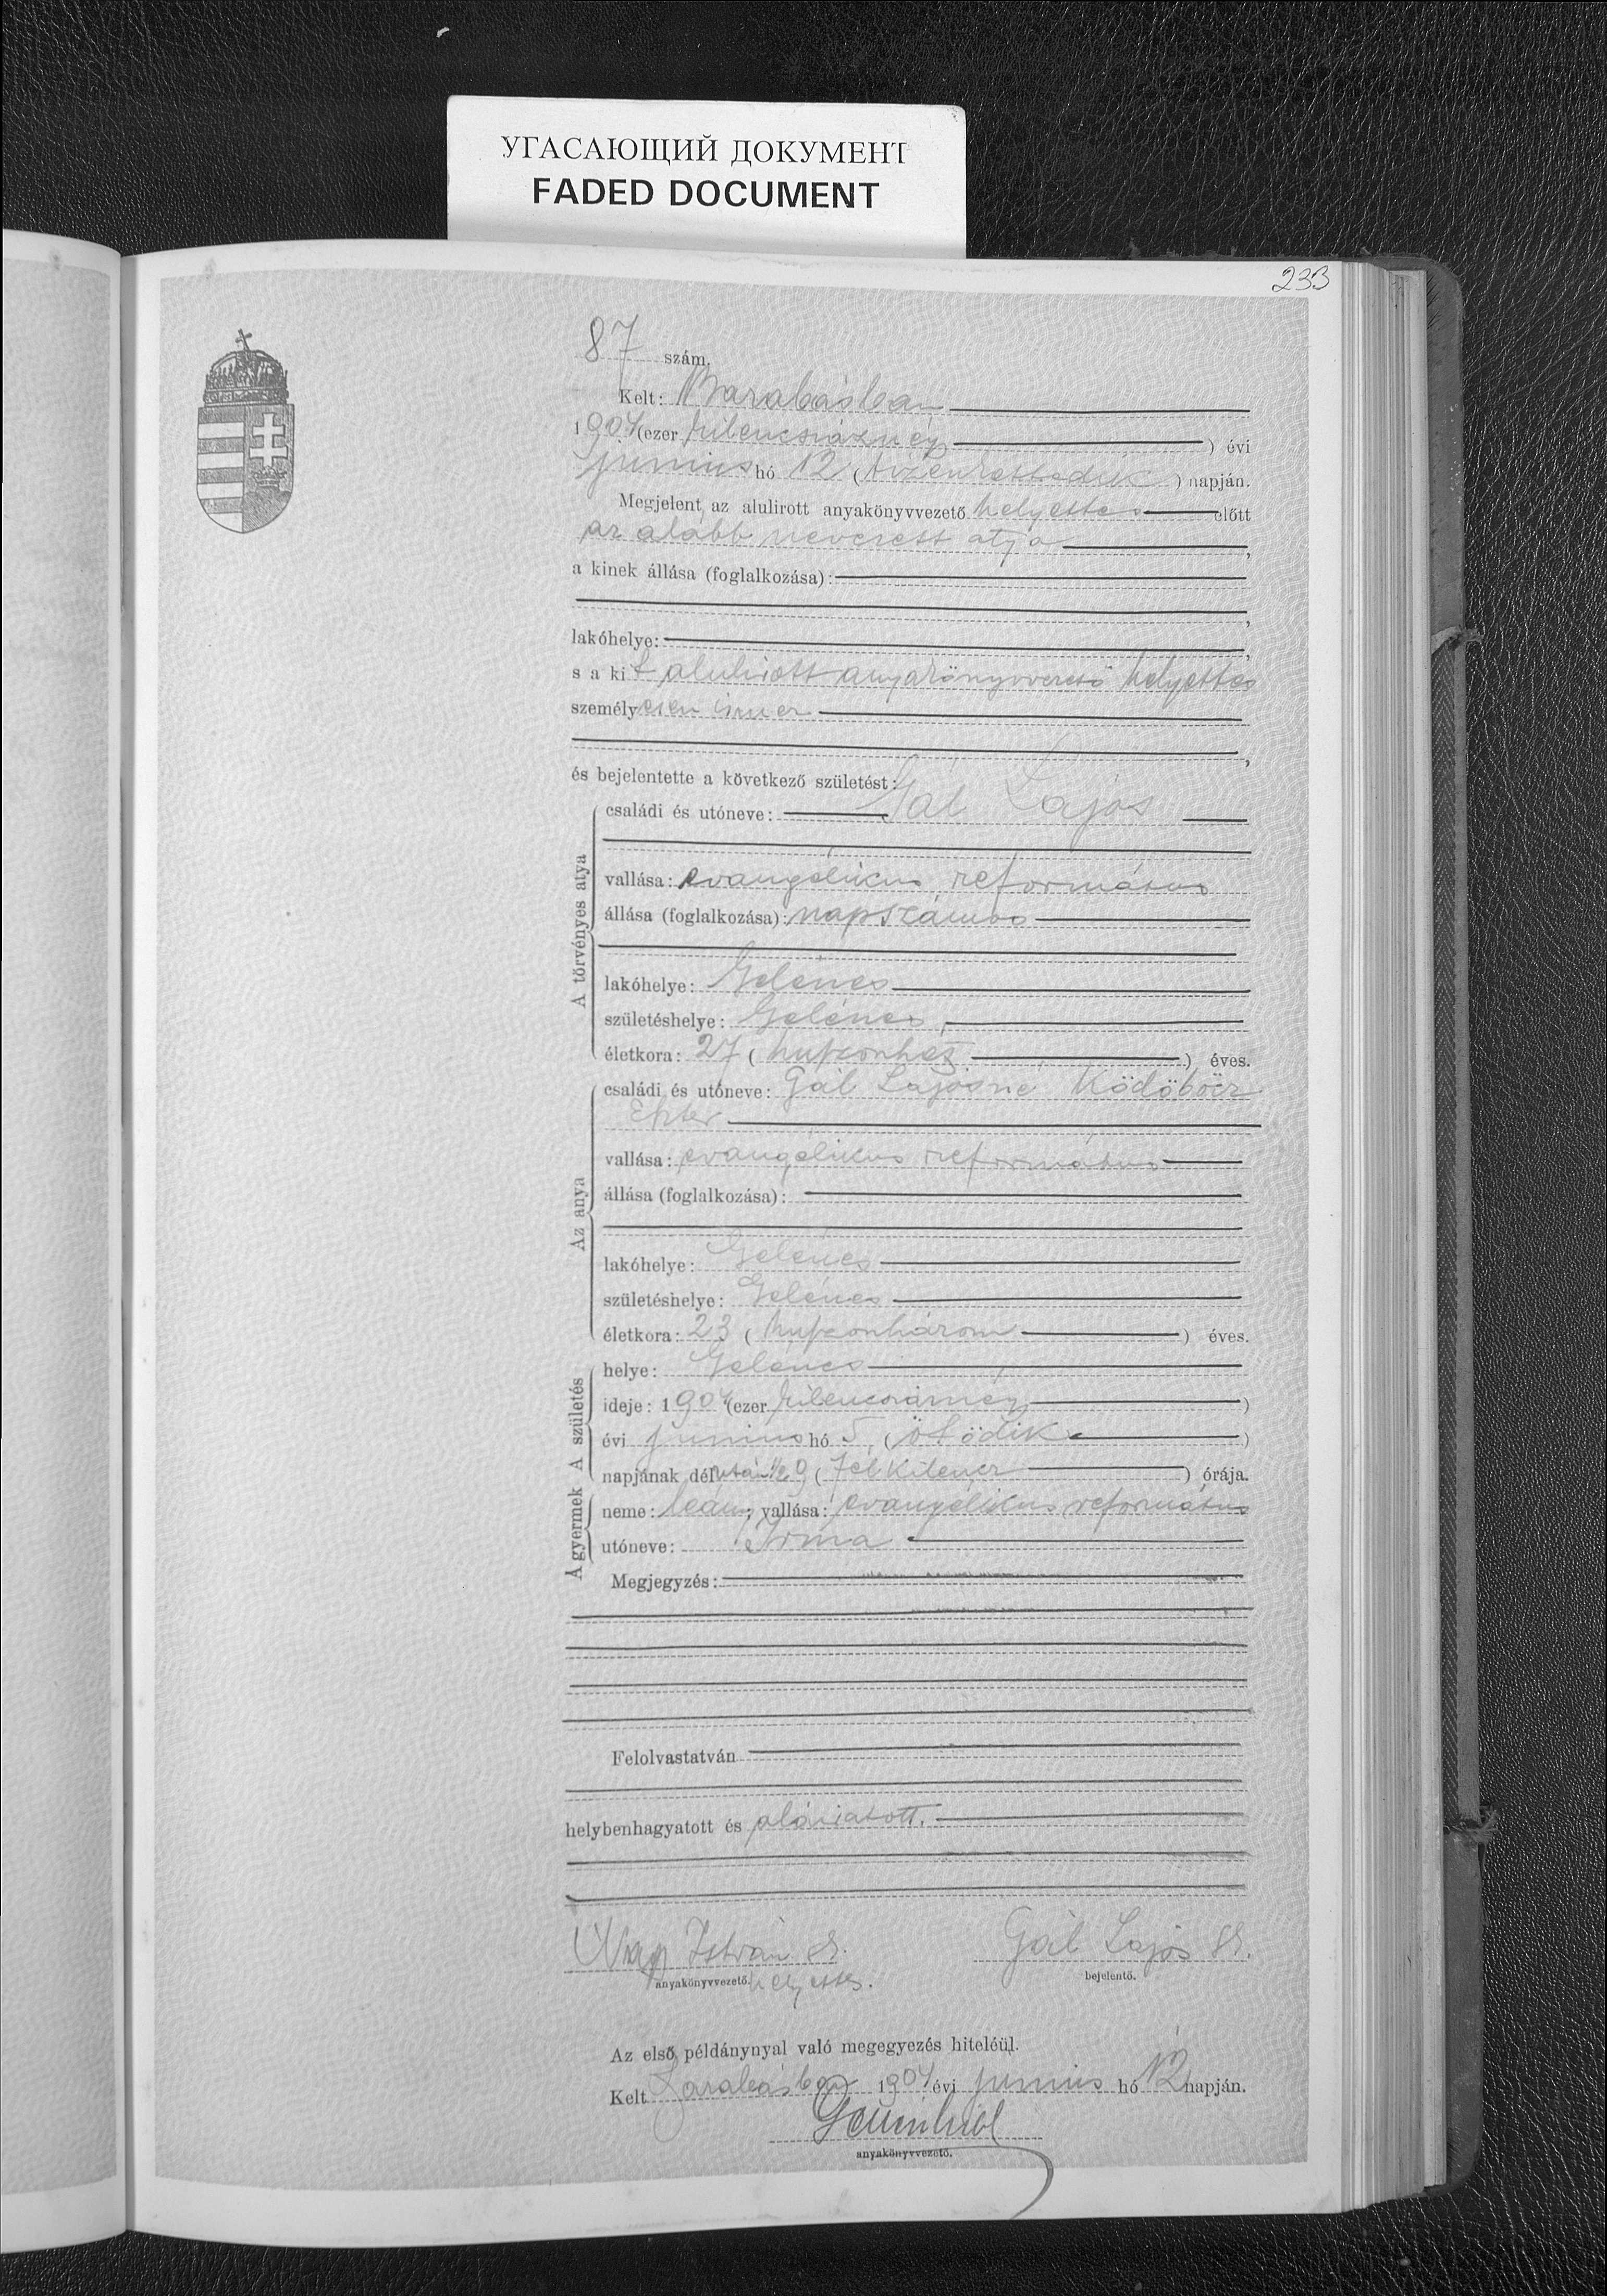 УГАСАЮЩИЙ ДОКУМЕНТ
FADED DOCUMENT
233
87 szám.
Kelt: Barabásban
1904 (ezer kilencszáznégy) évi
junius hó 12 (tizenkettedik) napján.
Megjelent az alulirott anyakönyvvezető helyettes előtt
az alább nevezett atya,
a kinek állása (foglalkozása):
lakóhelye:
s a kit alulirott anyakönyvvezető helyettes
személyesen ismer
és bejelentette a következő születést:
A törvényes atya
családi és utóneve: Gál Lajos
vallása: evangélikus református
állása (foglalkozása): napszámos
lakóhelye: Gelénes
születéshelye: Gelénes
életkora: 27 (huszonhét) éves.
Az anya
családi és utóneve: Gál Lajosné Ködöböcz
Eszter
vallása: evangélikus református
állása (foglalkozása):
lakóhelye: Gelénes
születéshelye: Gelénes
életkora: 23 (huszonhárom) éves.
A születés
helye: Gelénes
ideje: 1904 (ezer kilencszáznégy)
évi junius hó 5. (ötödik)
napjának délután ½ 9 (fél kilencz) órája.
A gyermek
neme: leány; vallása: evangélikus református
utóneve: Irma
Megjegyzés:
Felolvastatván
helybenhagyatott és aláiratott.
Nagy István sk. Gál Lajos sk.
anyakönyvvezető helyettes. bejelentő.
Az első példánynyal való megegyezés hiteléül.
Kelt Barabásban 1904 évi junius hó 12 napján.
anyakönyvvezető.